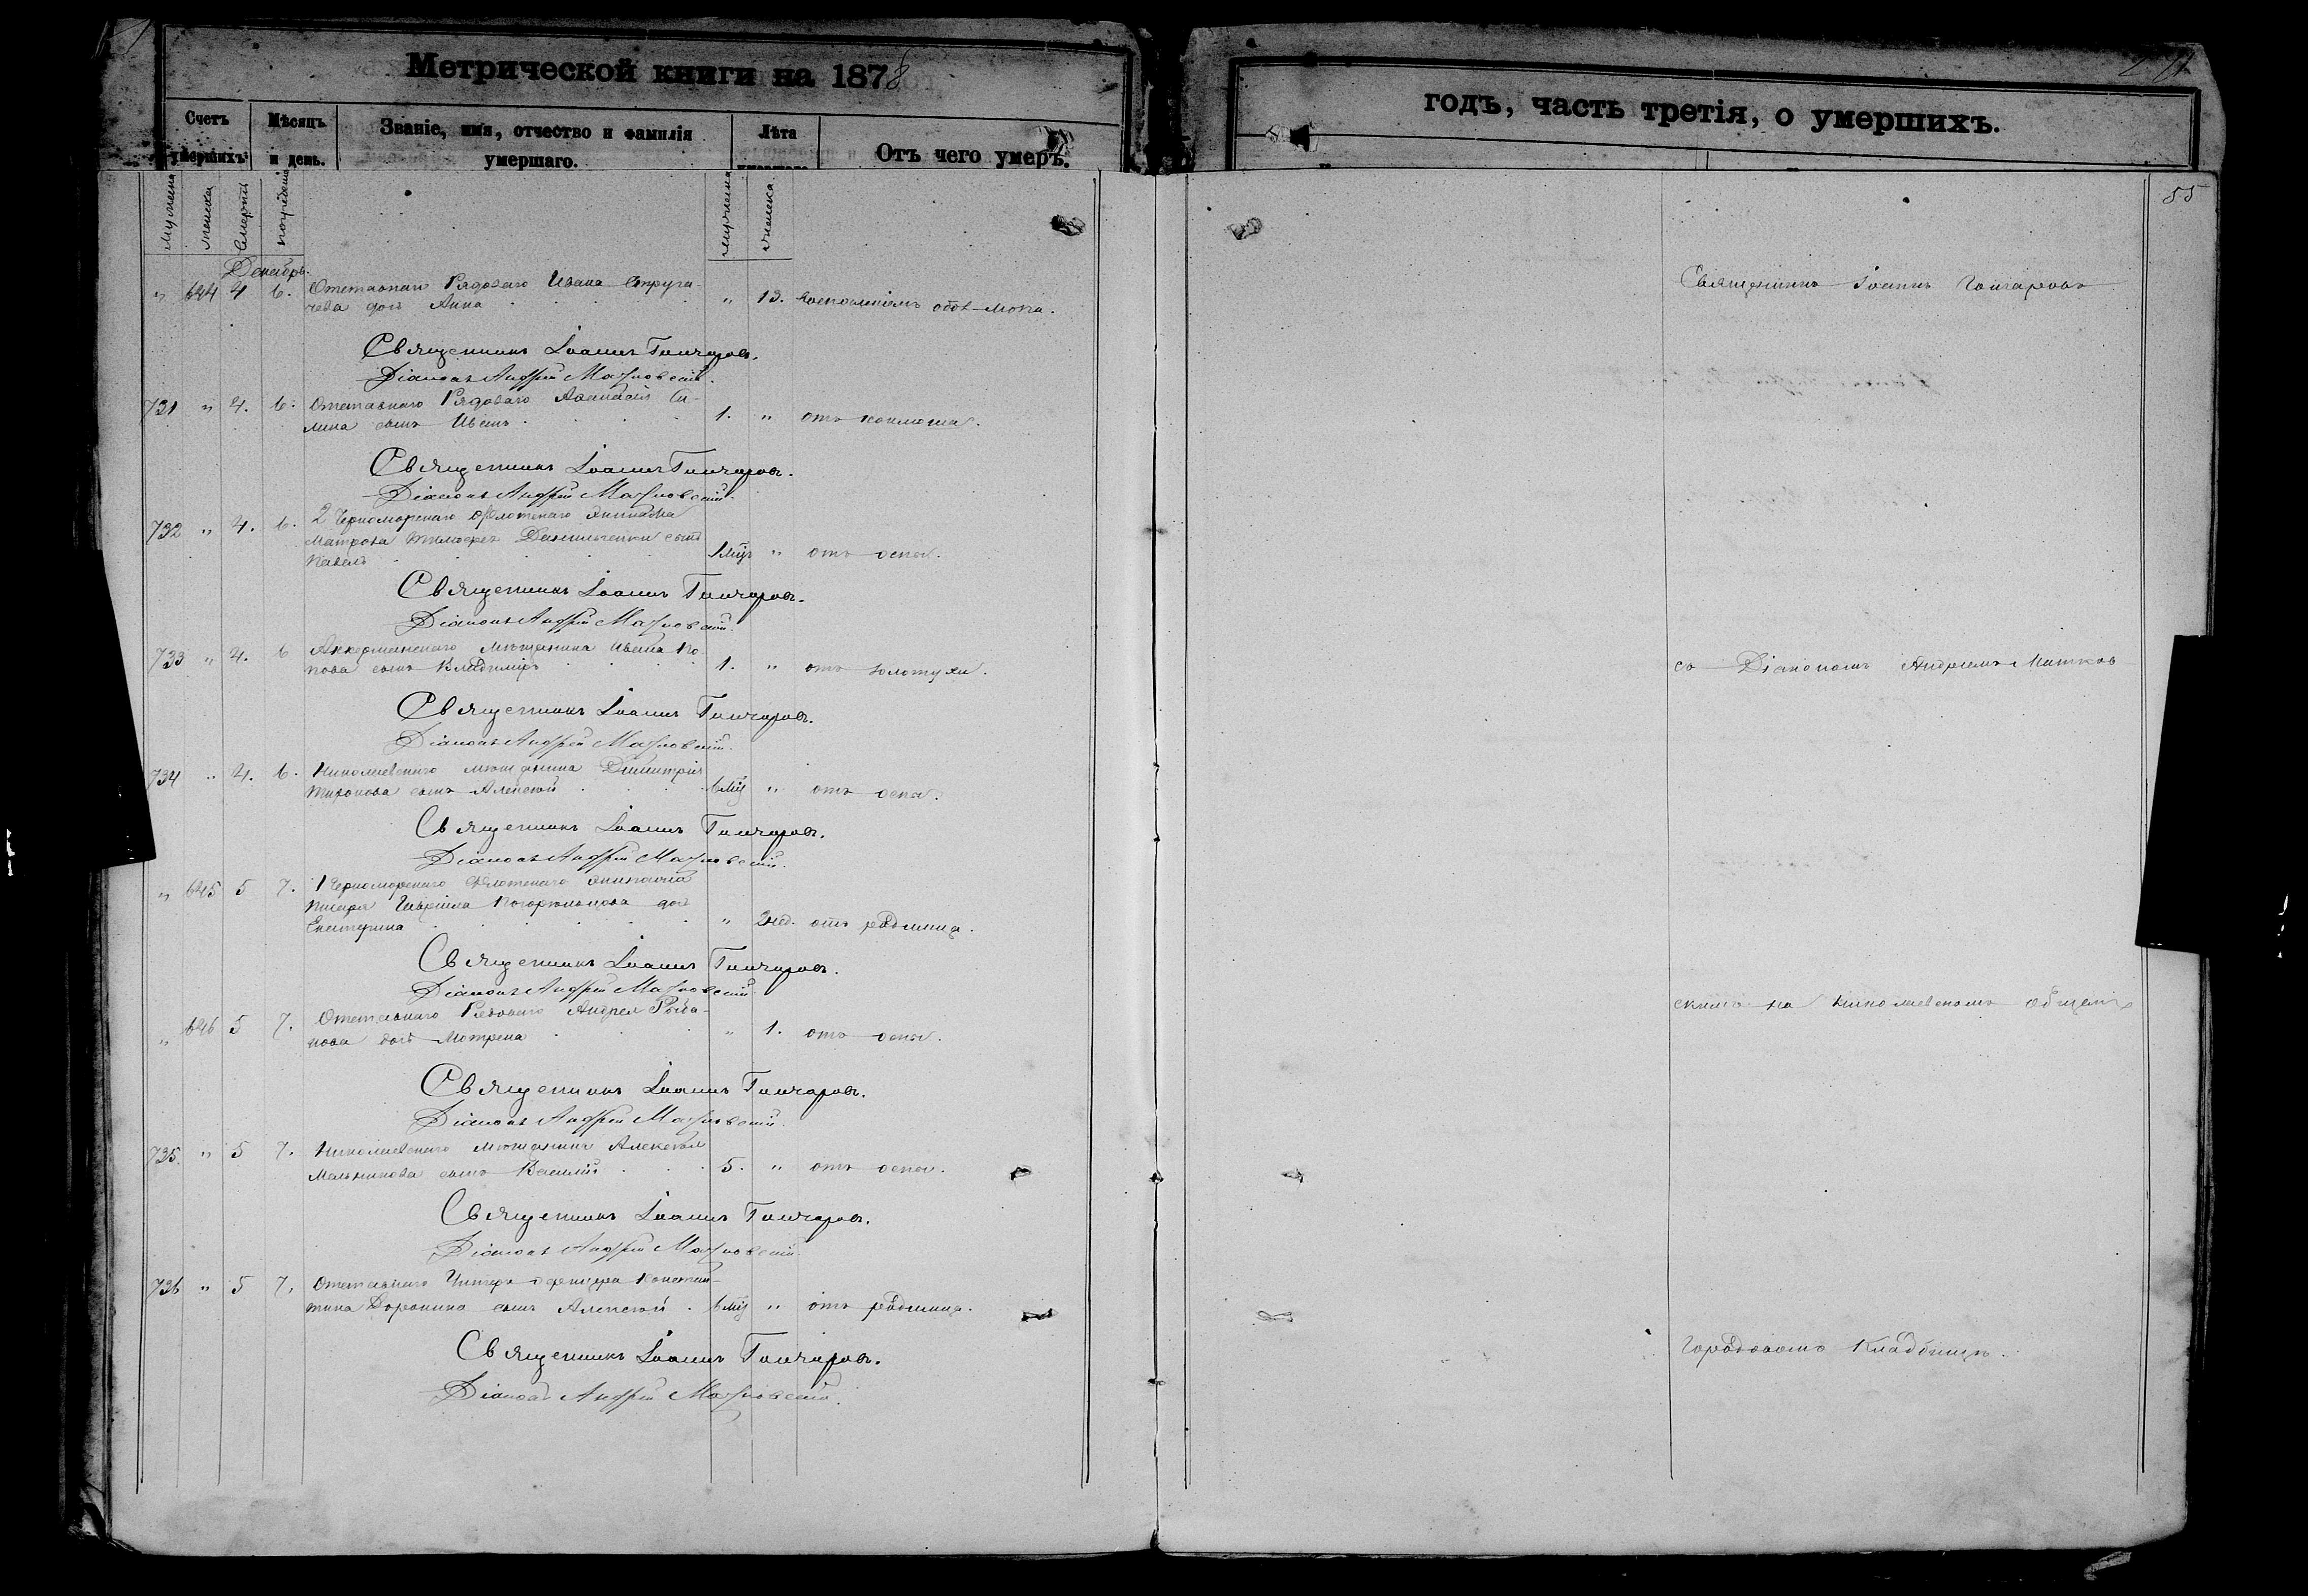 Метрической книги на 1878
годъ, часть третія, о умершихъ.
Счетъ умершихъ
Мѣсяцъ и день.
Званіе, имя, отчество и фамилія умершаго.
Лѣта
Отъ чего умеръ.
55
Декабрь.
" 644 4 6. Отставнаго Рядоваго Ивана Струга-
чева дочь Анна " 13.
Священникъ Іоаннъ Гончаровъ.
Діаконъ Андрей Матковскій.
731 " 4. 6. Отставнаго Рядоваго Аѳанасія Си-
лина сынъ Иванъ 1. " отъ коклюша.
Священникъ Іоаннъ Гончаровъ.
Діаконъ Андрей Матковскій.
732 " 4. 6. 2 Черноморскаго Флотскаго Экипажа
Матроса сынъ
Павелъ " отъ оспы.
Священникъ Іоаннъ Гончаровъ.
Діаконъ Андрей Матковскій.
733 " 4. 6 Аккерманскаго Мѣщанина Ивана По-
пова сынъ Владиміръ 1. " отъ золотухи.
Священникъ Іоаннъ Гончаровъ.
Діаконъ Андрей Матковскій.
734 " 4. 6. Николаевскаго мѣщанина Димитрія
сынъ Алексѣй 6 мѣ " отъ оспы.
Священникъ Іоаннъ Гончаровъ.
Діаконъ Андрей Матковскій.
" 645 5 7. 1 Черноморскаго Флотскаго экипажа
Писаря Гавріила дочь
Екатерина " 2 нед. отъ родимца.
Священникъ Іоаннъ Гончаровъ.
Діаконъ Андрей Матковскій.
" 646 5 7. Отставнаго Рядоваго Андрея Рыба-
кова дочь Матрена " 1. отъ оспы.
Священникъ Іоаннъ Гончаровъ.
Діаконъ Андрей Матковскій.
735. " 5 7. Николаевскаго мѣщанина Алексѣя
Мельникова сынъ Василій 5. " отъ оспы.
Священникъ Іоаннъ Гончаровъ.
Діаконъ Андрей Матковскій.
736 " 5 7. Отставнаго Унтеръ офицера Констан-
тина Доронина сынъ Алексѣй 6 мѣ " отъ родимца.
Священникъ Іоаннъ Гончаровъ.
Діаконъ Андрей Матковскій.
Священникъ Іоаннъ Гончаровъ
съ Діакономъ Андреемъ Матков-
скимъ на Николаевскомъ общемъ
городскомъ Кладбищѣ.